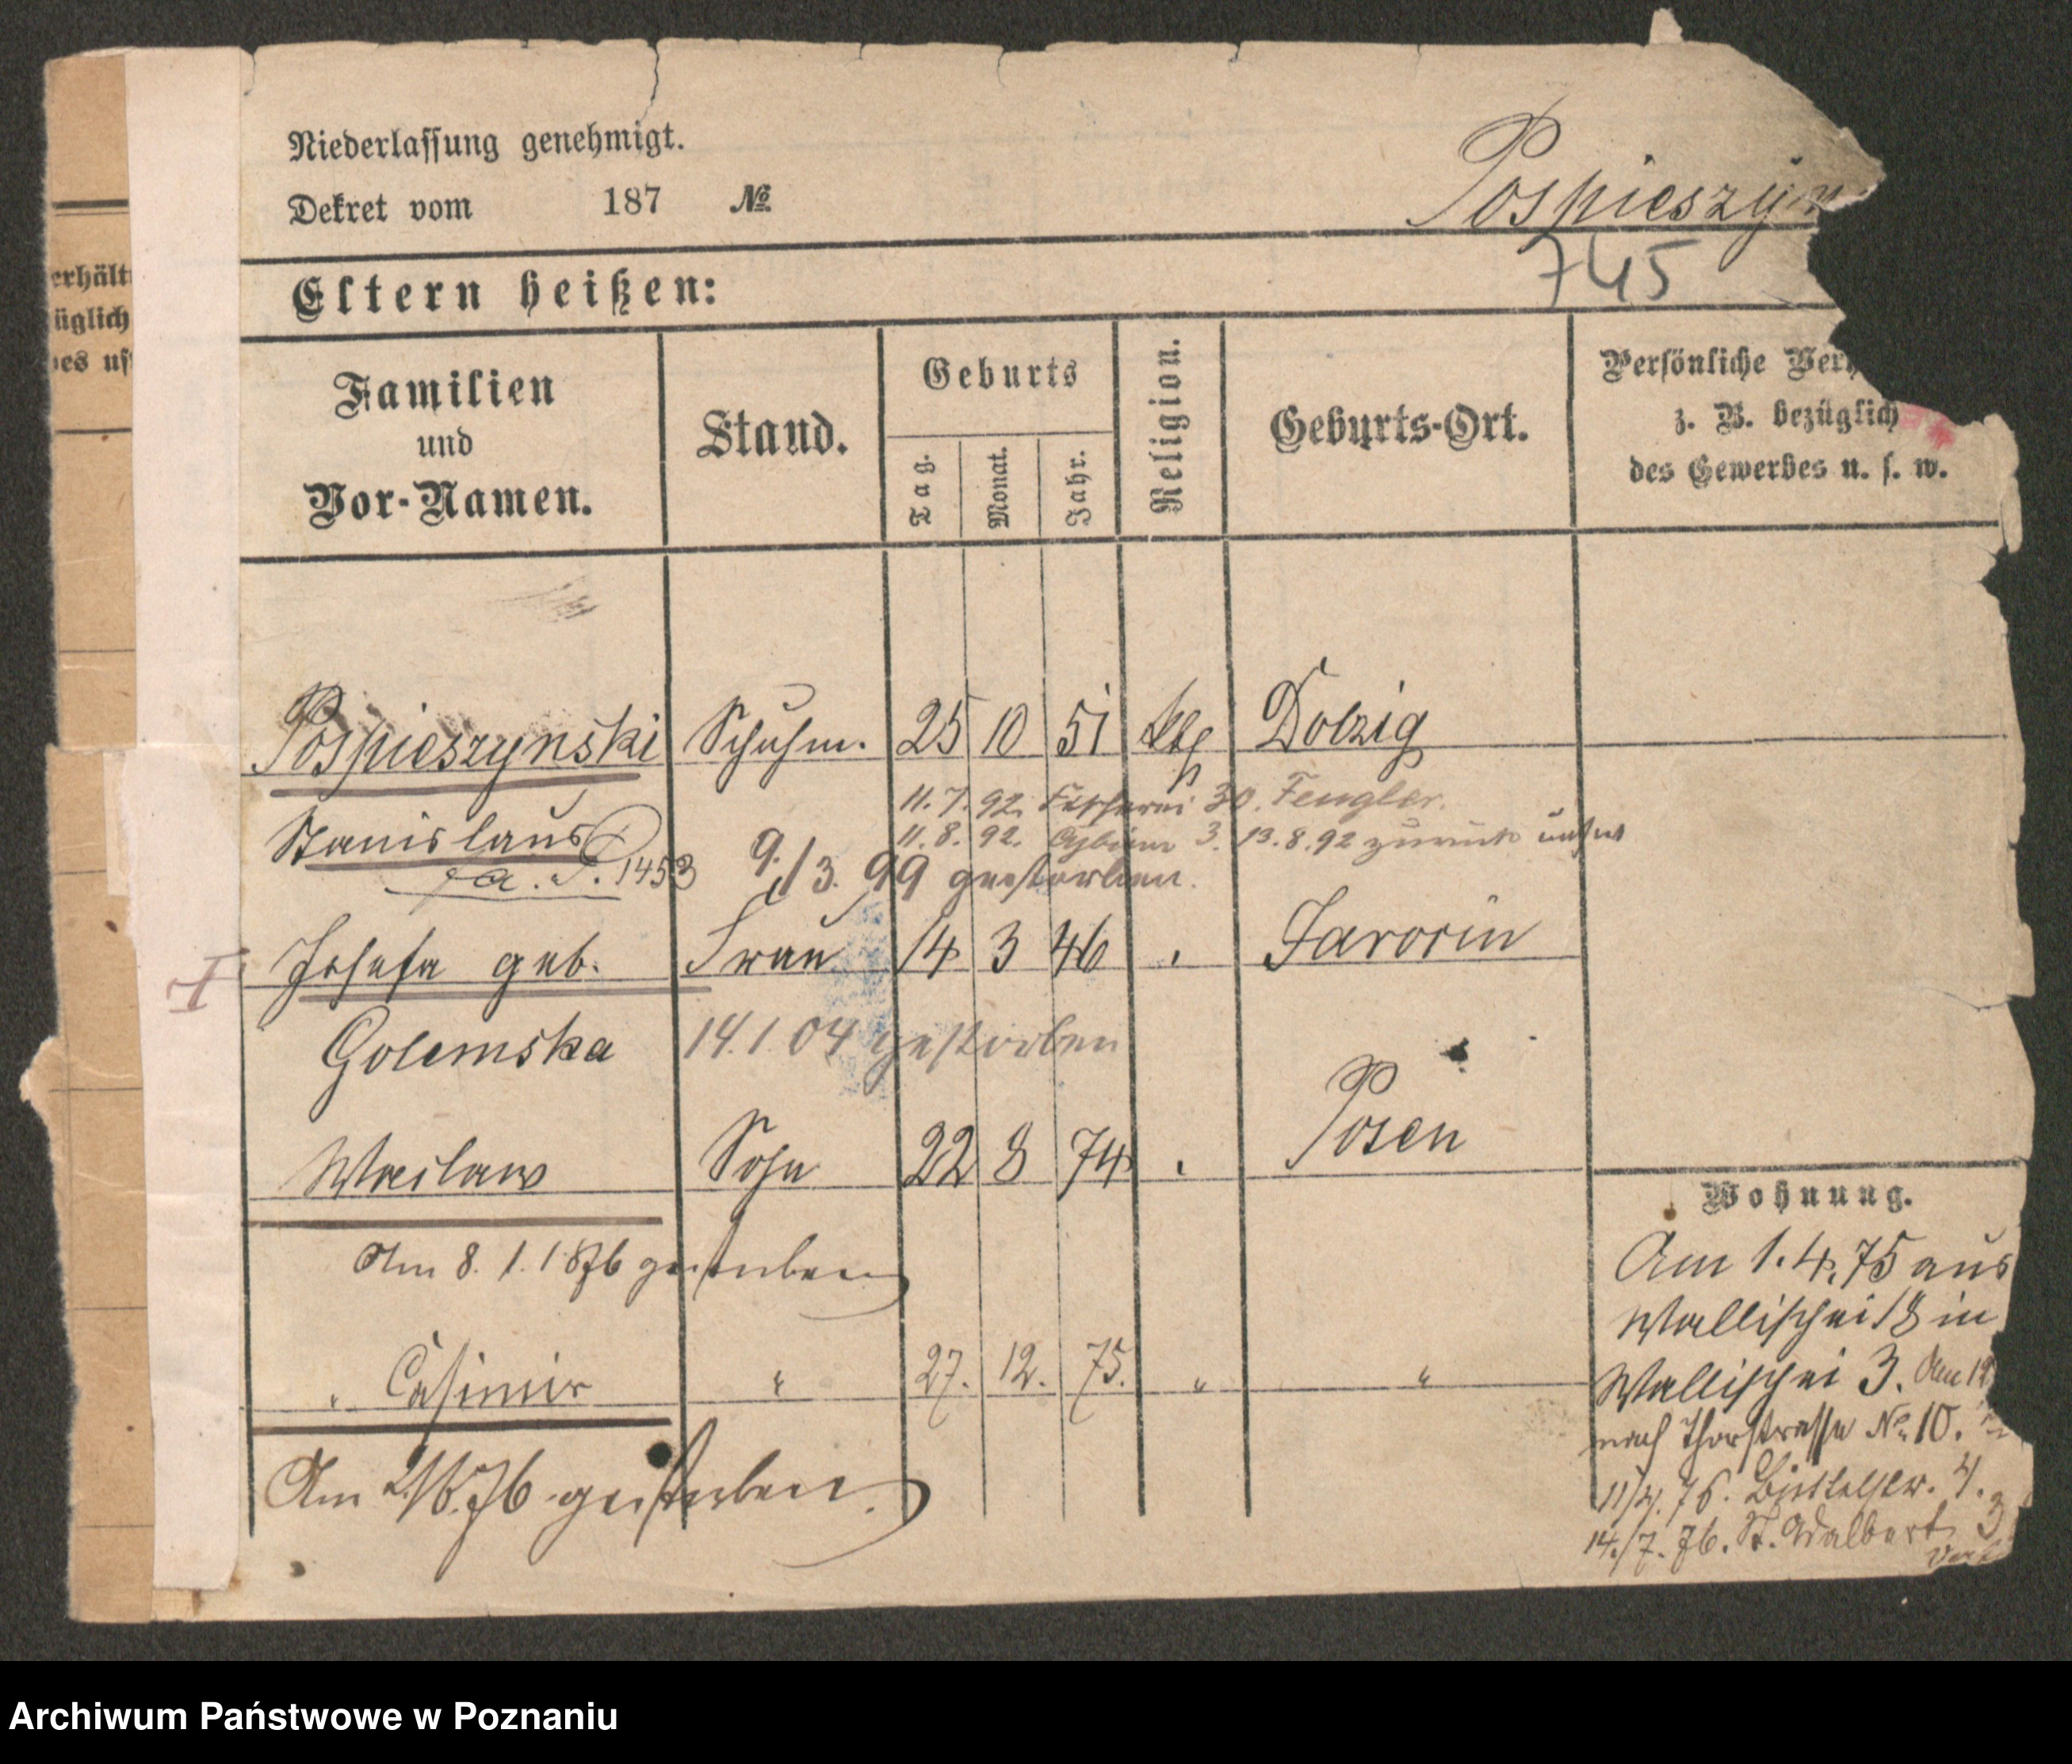 Niederlassung genehmigt.
Dekret vom 187 №
Pospieszyn
745
Eltern heißen:
erhält
üglich
es us
Familien
und
Vor-Namen.
Stand.
Geburts
Tag.
Monat.
Jahr.
Religion.
Geburts-Ort.
Persönliche Verh
z. B. bezüglich
des Gewerbes u. s. w.
Pospieszynski Schuhm. 25 10 51 kth Dolzig
11. 7. 92. Fischerei 30. Fengler.
Stanislaus
11. 8. 92. 3. 13.8.92 zurück
1453
9./3. 99 gestorben.
Josefa geb. Frau 14 3 46 " Jarocin
Golemska
14. 1. 04 gestorben
Waclaw Sohn 22 8 74 " Posen
Am 8. 1. 1876 gestorben
" Casimir " 27. 12. 75. " "
Am 2/6.76 gestorben.
Wohnung.
Am 1. 4. 75 aus
Wallischei 18 in
Wallischei 3. Am 12
nach Thorstrasse No. 10.
11/4. 76. Büttelstr. 4.
14./7. 76. St. Adalbert 3
Archiwum Państwowe w Poznaniu